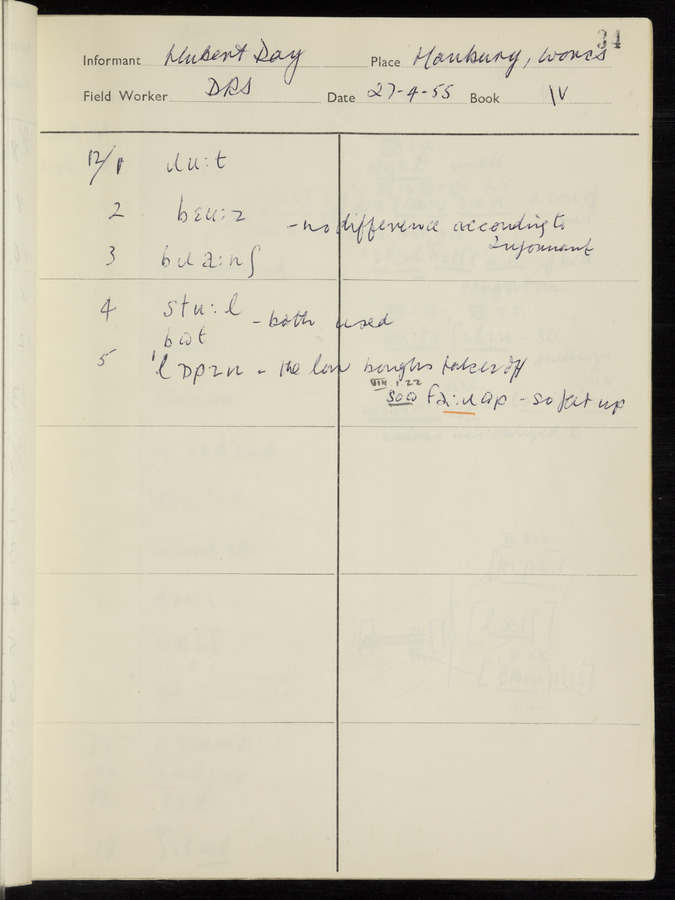 34
Informant Hubert Day Place Hanbury, Worcs
Field Worker DRS Date 27-4-55 Book IV
12/1 ɹu:t
2 bɛu:z - no difference according to
Informant
3 bɹa:nʃ
4 stu:l - both used
bɷt
5 'lɒpzn - the low boughs takes off
VIII 1.22
soo ɷp - so far up